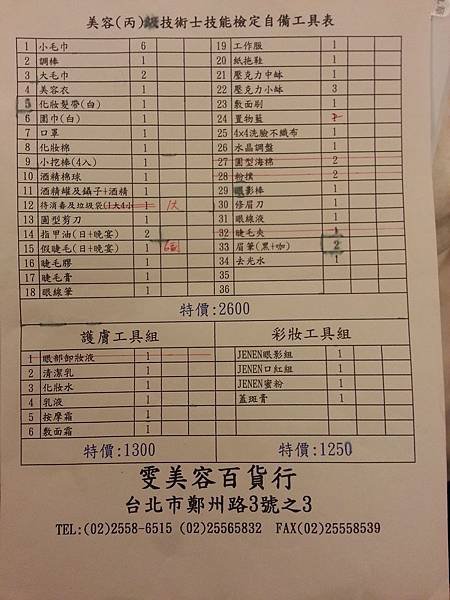 美容(丙)級技術士技能檢定自備工具表
1 小毛巾 6 19 工作服 1
2 調棒 1 20 紙拖鞋 1
3 大毛巾 2 21 壓克力中缽 1
4 美容衣 1 22 壓克力小缽 3
5 化妝髮帶(白) 1 23 敷面刷 1
6 圍巾(白) 1 24 置物籃
7 口罩 1 25 4x4洗臉不織布 1
8 化妝棉 1 26 水晶調盤 1
9 小挖棒(4入) 1 27 圓型海棉 2
10 酒精棉球 1 28 粉撲 2
11 酒精罐及鑷子+酒精 1 29 眼影棒 1
12 待消毒及垃圾袋(1大4小 1 1大 30 修眉刀 1
13 圓型剪刀 1 31 眼線液 1
14 指甲油(日+晚宴) 2 32 睫毛夾 1
15 假睫毛(日+晚宴) 1 33 眉筆(黑+咖) 2
16 睫毛膠 1 34 去光水 1
17 睫毛膏 1 35
18 眼線筆 1 36
特價:2600
護膚工具組 彩妝工具組
1 眼部卸妝液 1 JENEN眼影組 1
2 清潔乳 1 JENEN口紅組 1
3 化妝水 1 JENEN蜜粉 1
4 乳液 1 蓋斑膏 1
5 按摩霜 1
6 敷面霜 1
特價:1300 特價:1250
雯美容百貨行
台北市鄭州路3號之3
TEL:(02)2558-6515 (02)25565832 FAX(02)25558539